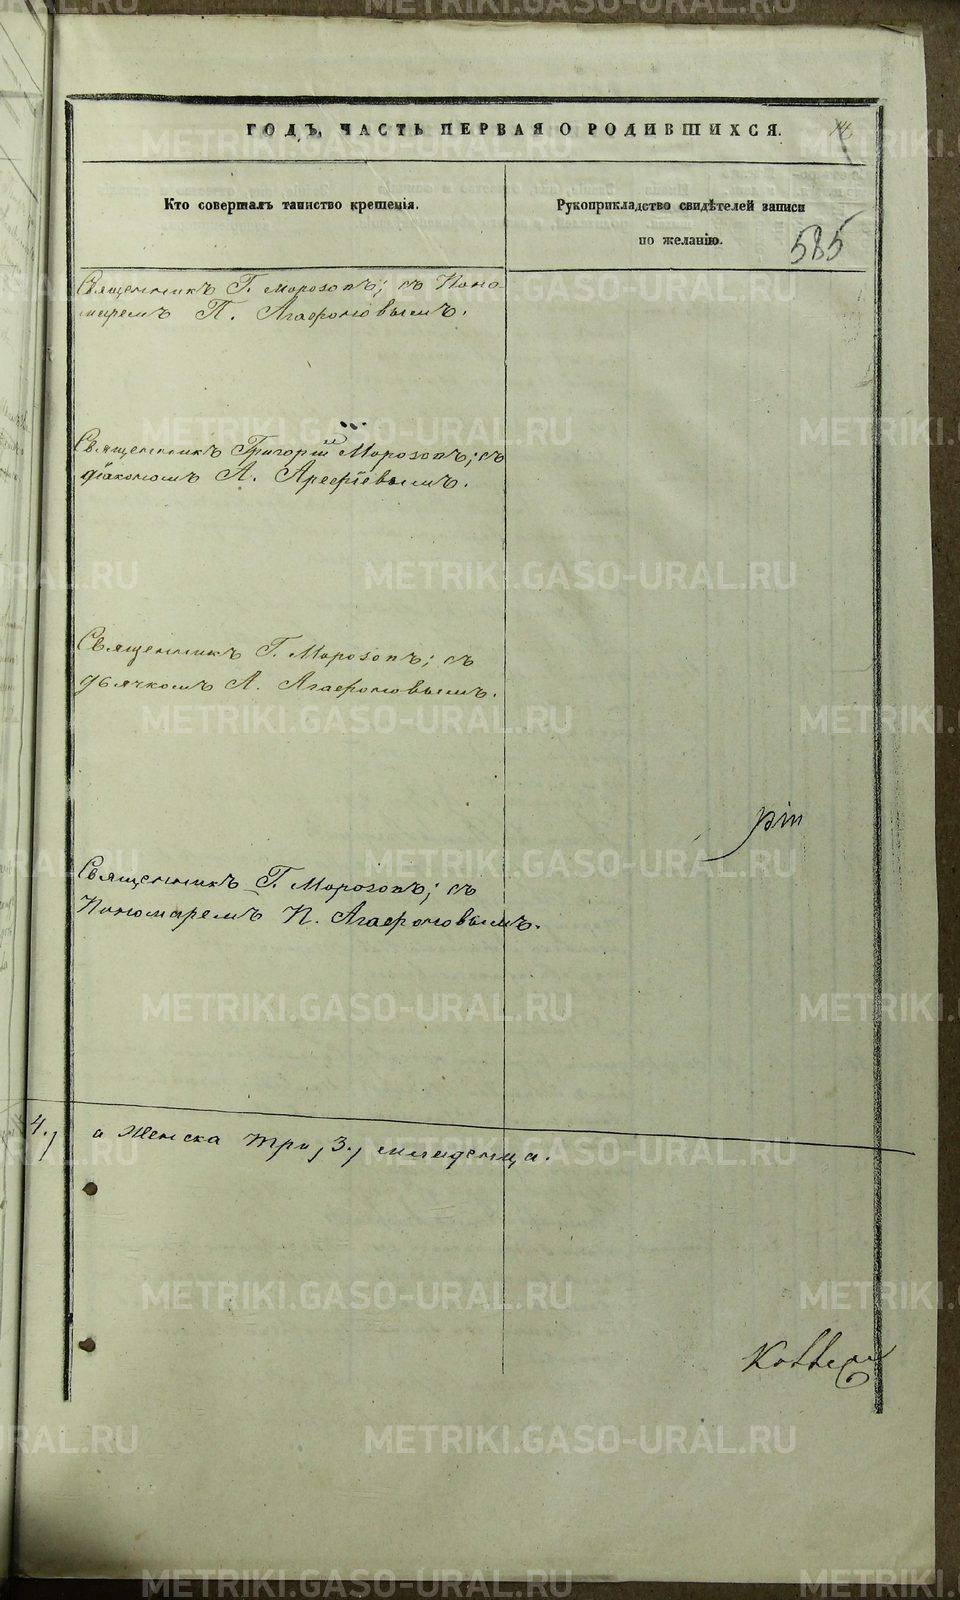 ГОДЪ, ЧАСТЬ ПЕРВАЯ О РОДИВШИХСЯ.
585
Кто совершалъ таинство крещенія.
Рукоприкладство свидѣтелей записи
по желанію.
Священникъ Г. Морозовъ; съ Поно-
маремъ П. Агафоновымъ.
Священникъ Григорій Морозовъ; съ
діакономъ А. Арефіевымъ.
Священникъ Г. Морозовъ; съ
дьячкомъ А. Агафоновымъ.
Священникъ Г. Морозовъ; съ
Пономаремъ П. Агафоновымъ.
4., а женска три, 3., младенца.
METRIKI.GASO-URAL.RU